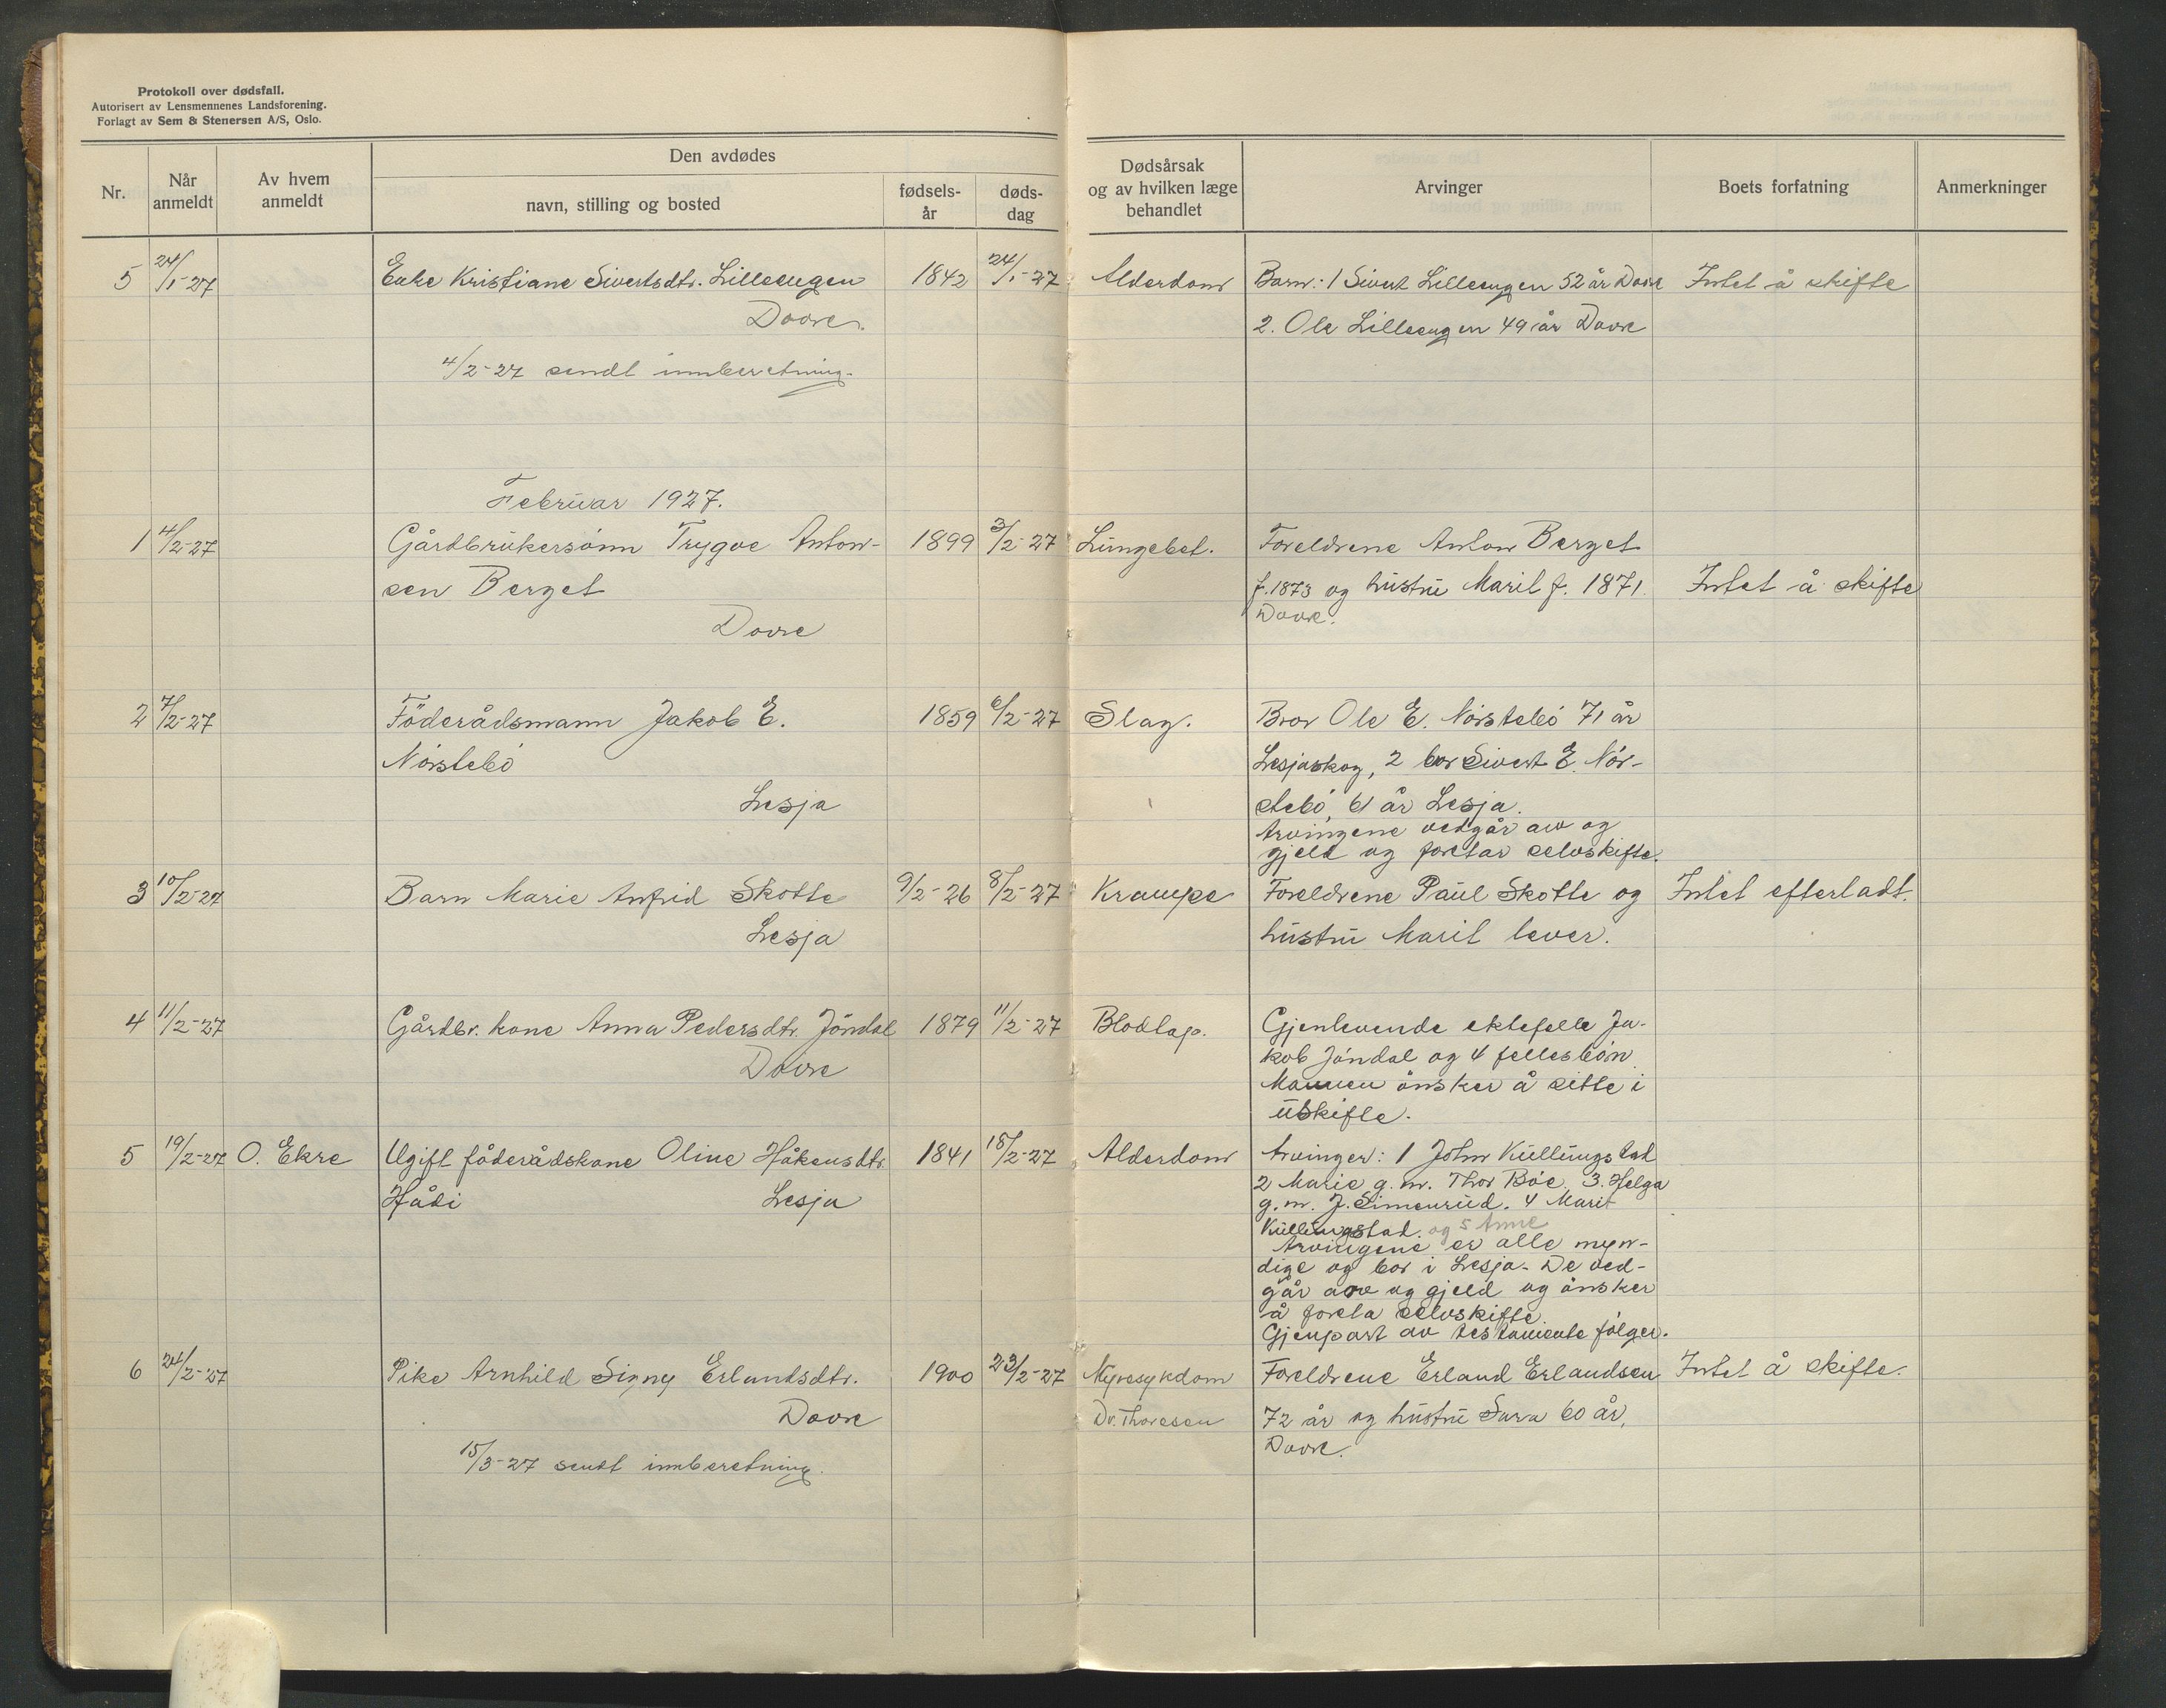 Protokoll over dødsfall.
Autorisert av Lensmennenes Landsforening.
Forlagt av Sem & Stenersen A/S, Oslo.
Nr.
Når anmeldt
Av hvem anmeldt
Den avdødes
navn, stilling og bosted
fødsels-år
døds-dag
Dødsårsak
og av hvilken læge
behandlet
Arvinger
Boets forfatning
Anmerkninger
5 24/1-27 Enke Kristiane Sivertsdtr. Lilleengen 1842 24/1-27 Alderdom Barn: 1 Sivert Lilleengen 52 år Dovre Intet å skifte
Dovre. 2. Ole Lilleengen 49 år Dovre
4/2-27 sendt innberetning.
Februar 1927.
1 4/2-27 Gårdbrukersønn Trygve Anton- 1899 3/2-27 Lungebet. Foreldrene Anton Berget
sen Berget f. 1873 og hustru Marit f. 1871. Intet å skifte
Dovre Dovre.
2 7/2-27 Föderådsmann Jakob E. 1859 6/2-27 Slag. Bror Ole E. Nörstebö 71 år
Nörstebö Lesjaskog, 2 bor Sivert E. Nör-
Lesja stebö, 61 år Lesja.
Arvingene vedgår arv og
gjeld og foretar selvskifte.
3 10/2-27 Barn Marie Anfrid Skotte 9/2-26 8/2-27 Krampe Foreldrene Paul Skotte og Intet efterladt.
Lesja hustru Marit lever.
4 11/2-27 Gårdbr. kone Anna Pedersdtr. Jöndal 1879 11/2-27 Blodlap. Gjenlevende ektefelle Ja-
Dovre kob Jöndal og 4 fellesbörn.
Mannen önsker å sitte i
uskifte.
5 19/2-27 O. Ekre Ugift föderådskone Oline Håkensdtr. 1841 18/2-27 Alderdom Arvinger: 1 John Kullungstad
Hådi Lesja 2 Marie g. m. Thor Böe, 3. Helga
g. m. J. Simenrud. 4 Marit
Kullungstad. og 5 Anne
Arvingene er alle myn-
dige og bor i Lesja. De ved-
går arv og gjeld og önsker
å foreta selvskifte.
Gjenpart av testamente fölger.
6 24/2-27 Pike Arnhild Signy Erlandsdtr. 1900 23/2-27 Nyresykdom Foreldrene Erland Erlandsen Intet å skifte.
Dovre Dr. Thoresen 72 år og hustru Sara 60 år,
Dovre.
15/3-27 sendt innberetning.